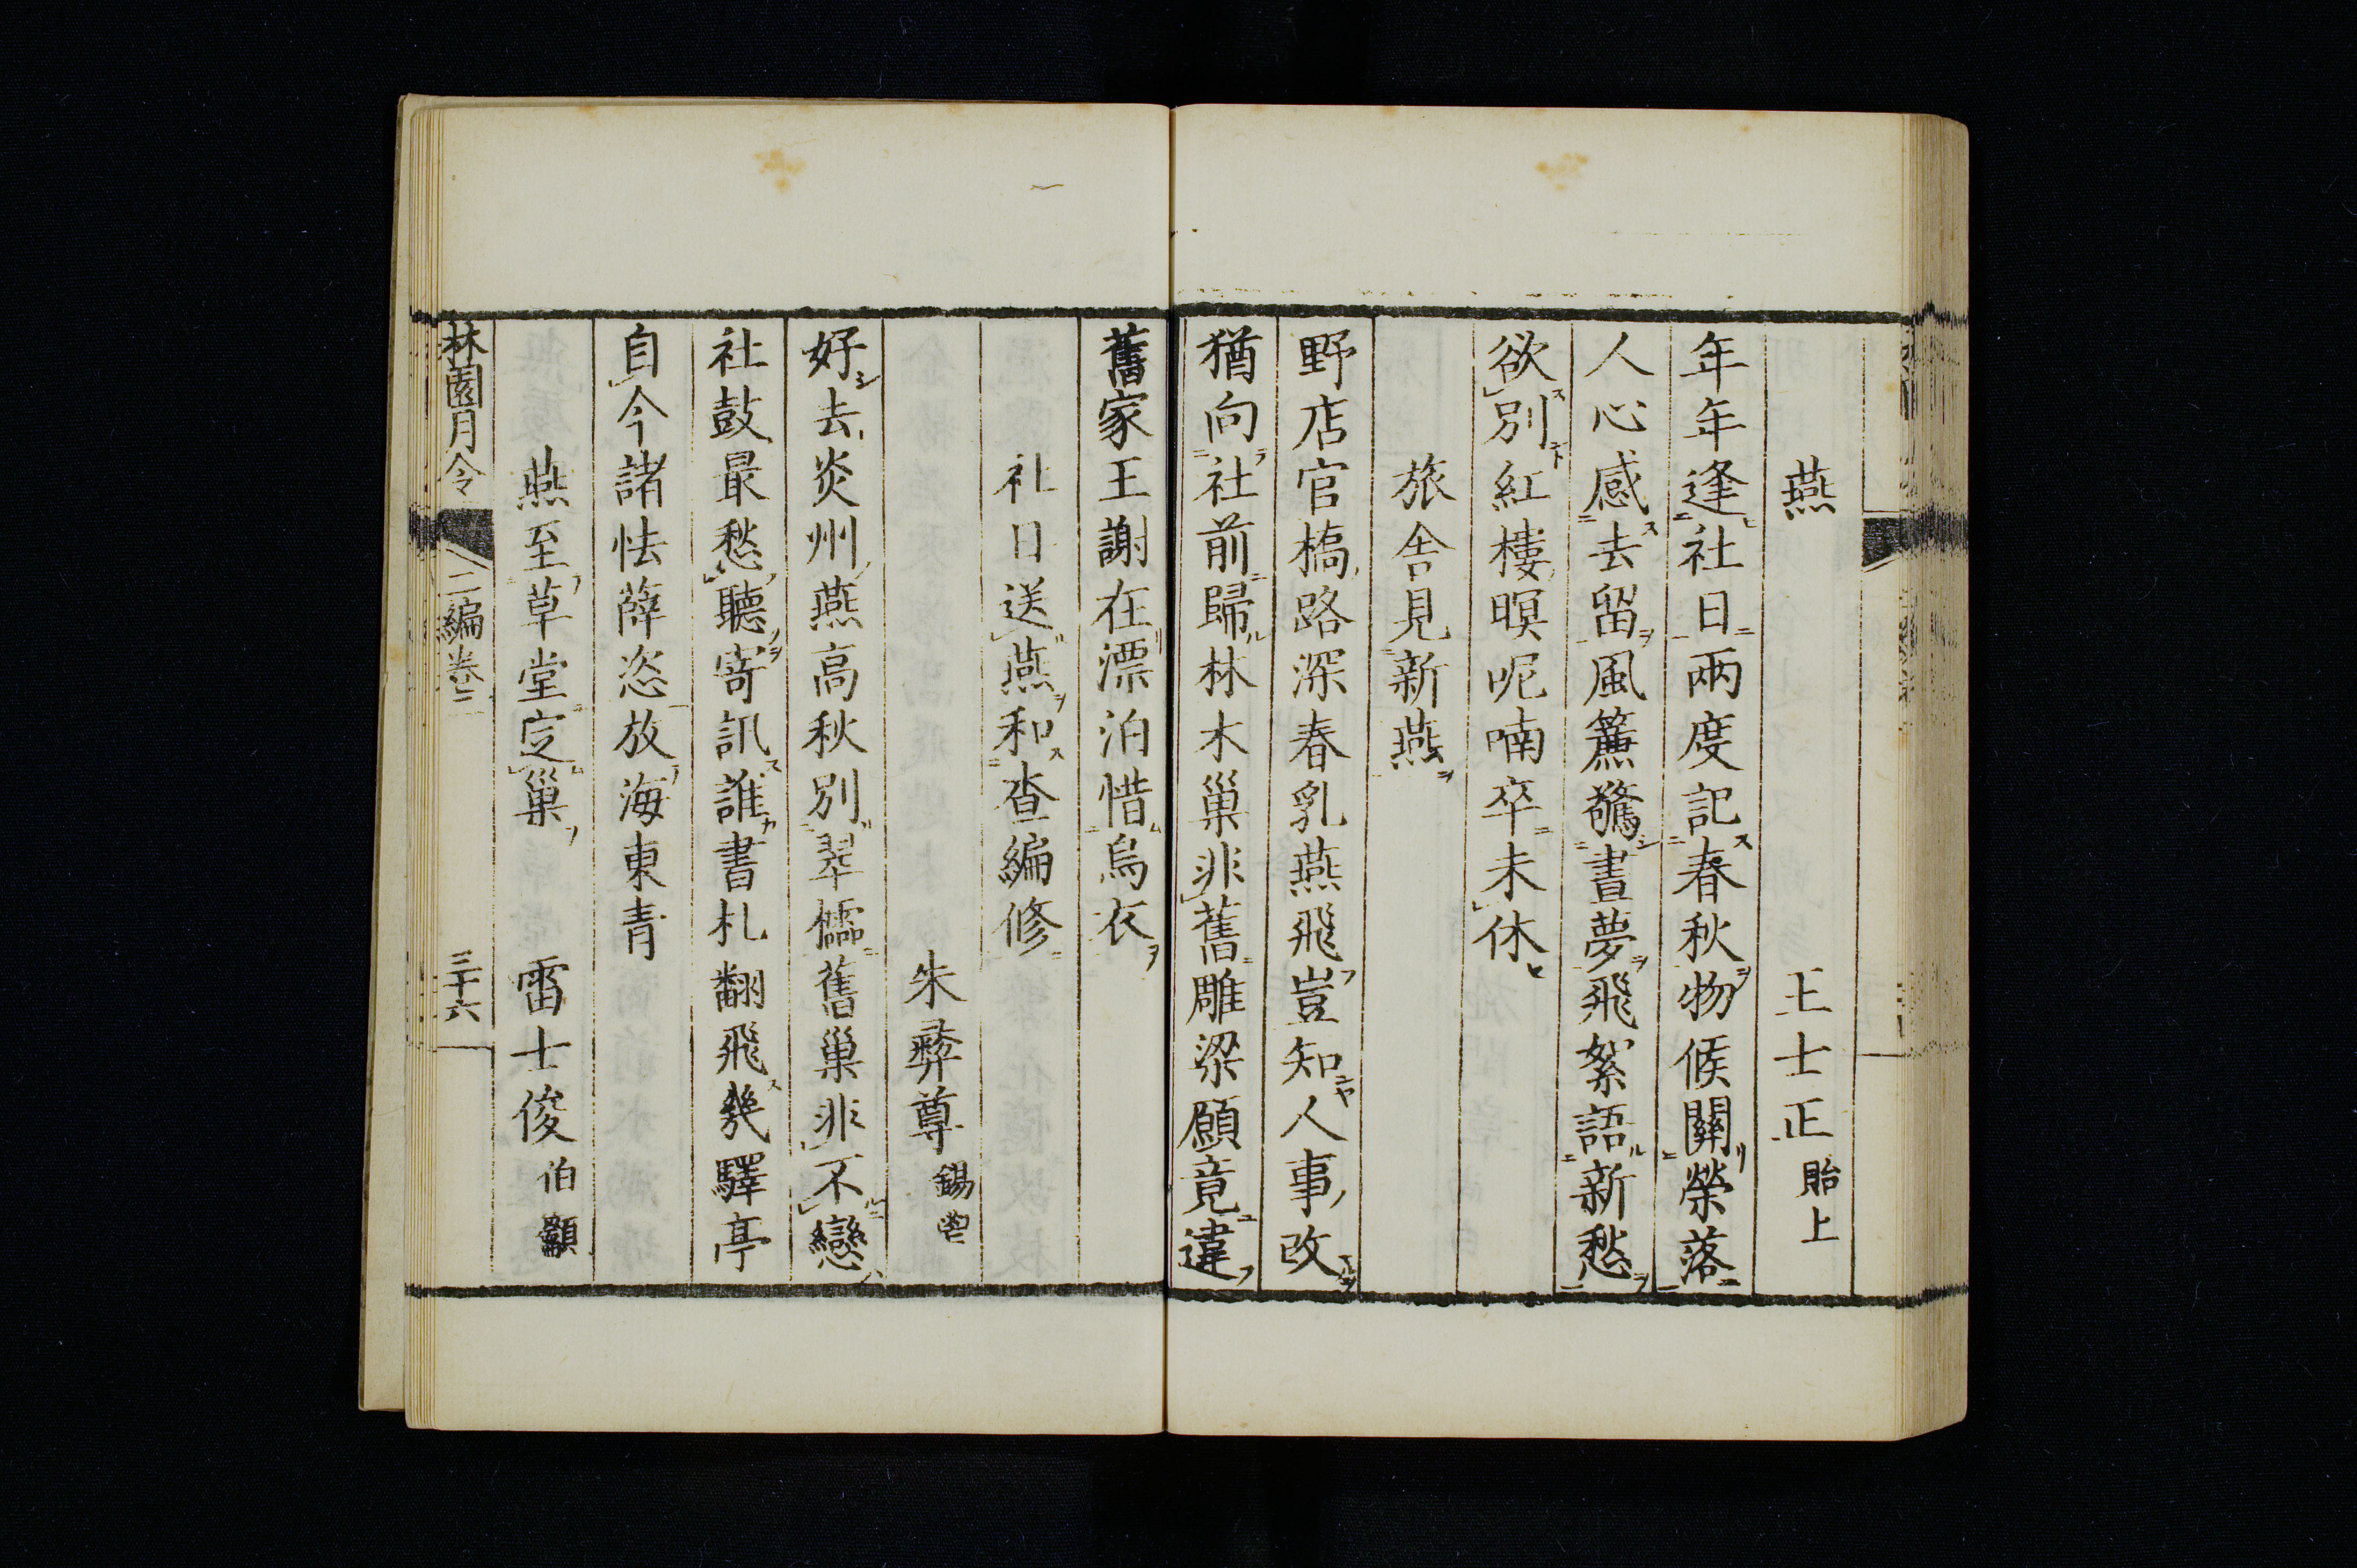 燕　王士正貽上
年年逢社日兩度記春秋物候關榮落
人心感去留風簾驚晝夢飛絮語新愁
欲別紅樓暝呢喃卒未休
旅舍見新燕
野店官橋路深春乳燕飛豈知人事改
猶向社前歸林木巢非舊雕梁願竟違
舊家王謝在漂泊惜烏衣
社日送燕和查編修
朱彝尊錫鬯
好去炎州燕高秋別翠櫺舊巢非不戀
社鼓最愁聽寄訊誰書札翻飛幾驛亭
自今諸怯薛恣放海東青
燕至草堂定巢　雷士俊伯顧
林園月令　二編卷二　三十六